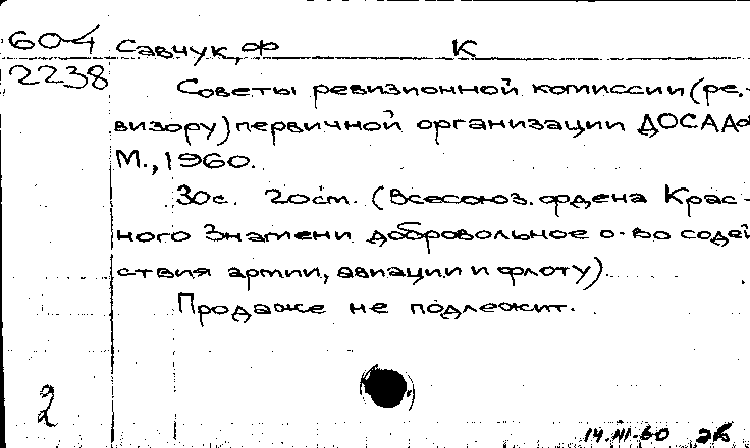 60-4 Савчук, Ф К
2238
Советы ревизионной комиссии (ре-
визору) первичной организации ДОСААФ
М., 1960.
30с. 20см. (Всесоюз. ордена Крас-
ного Знамени добровольное о-во содей
ствия армии, авиации и флоту)
Продаже не подлежит.
2
14.III-60